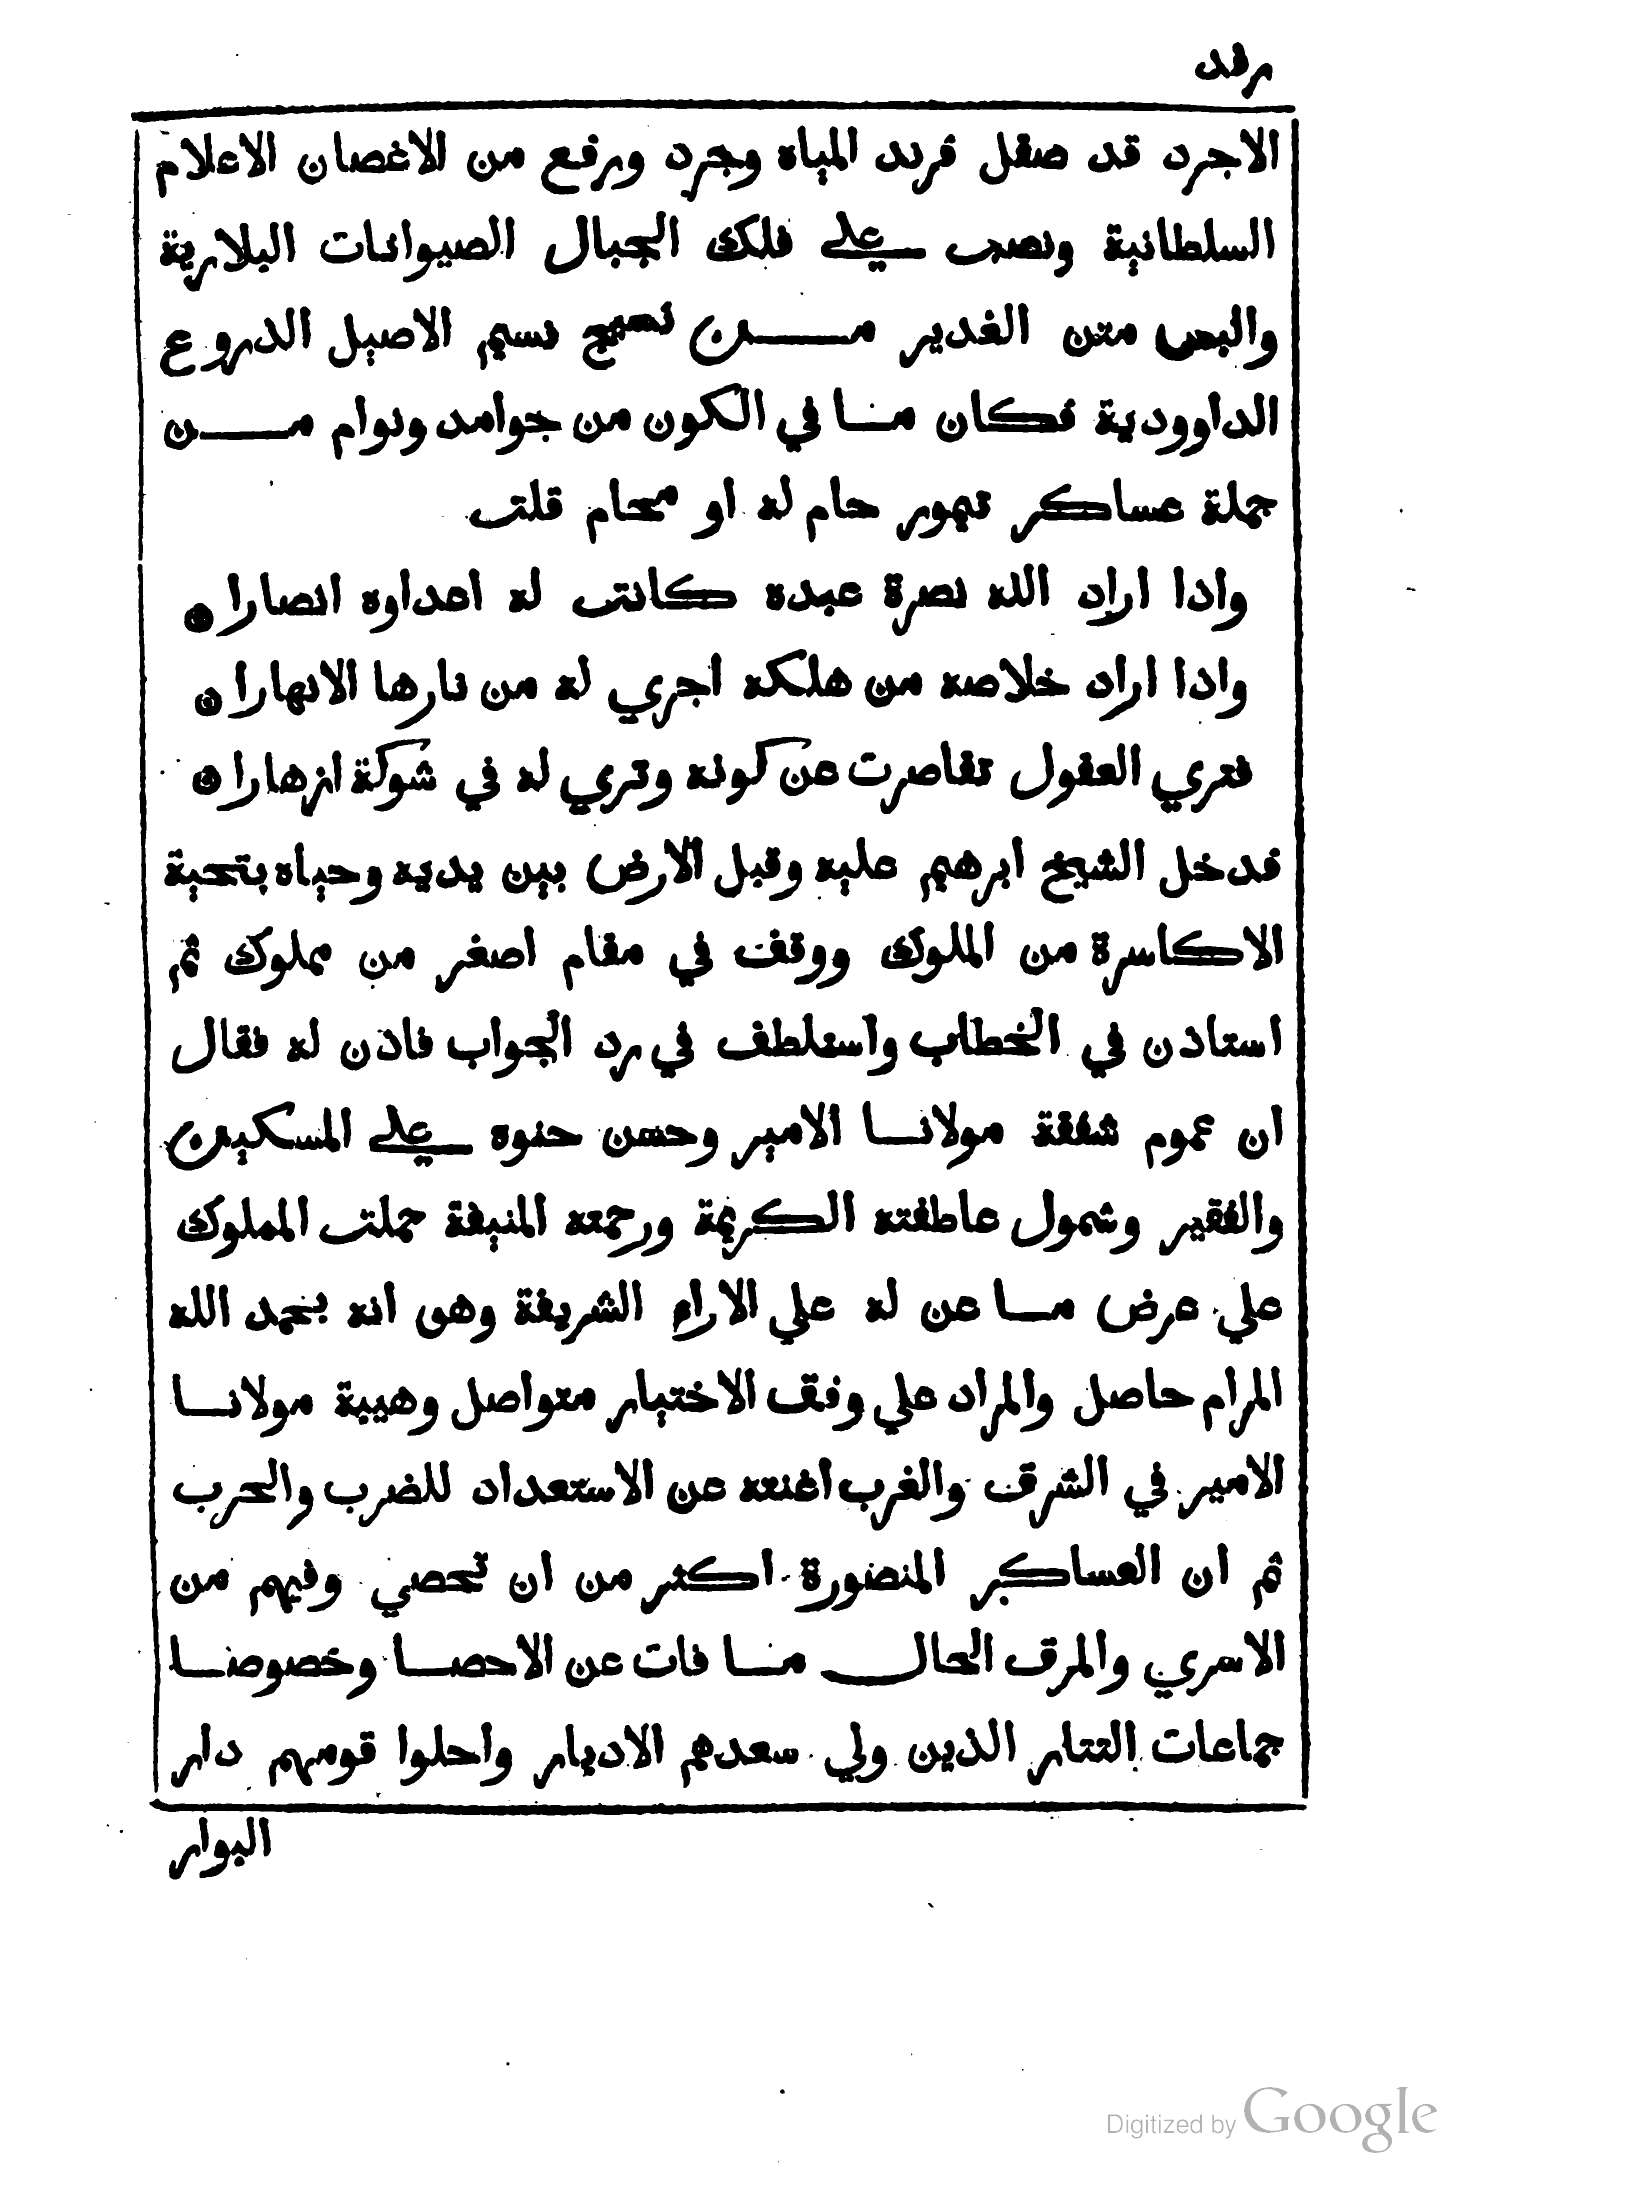 رفد
الاجرد قد صقل فرند المياه وجرد ورفع من الاغصان الاعلام
السلطانية ونصب علي فلك الجبال الصيوانات البلارية
والبس متن الغدير من نسيج نسيم الاصيل الدروع
الداوودية فكان منا في الكون من جوامد ونوام من
جملة عساكر تيمور حام له او محام قلت
واذا اراد الله نصرة عبده كانت له اعداوه انصارا ۞
واذا اراد خلاصه من هلكه اجري له من نارها الانهارا ۞
فتري العقول تقاصرت عن كونه وتري له في شوكة ازهارا ۞
فدخل الشيخ ابرهيم عليه وقبل الارض بين يديه وحياه بتحية
الاكاسرة من الملوك ووقف في مقام اصغر من مملوك ثم
استاذن في الخطاب واستلطف في رد الجواب فاذن له فقال
ان عموم شفقة مولانا الامير وحسن حنوه علي المسكين
والفقير وشمول عاطفته الكريمة ورحمته المنيفة حملت المملوك
علي عرض ما عن له علي الاراء الشريفة وهو انه بحمد الله
المرام حاصل والمراد علي وفق الاختيار متواصل وهيبة مولانا
الامير في الشرق والغرب اغنته عن الاستعداد للضرب والحرب
ثم ان العساكر المنصورة اكثر من ان تحصي وفيهم من
الاسري والمرق الحال منا فات عن الاحصا وخصوصا
جماعات التتار الذين ولي سعدهم الاديار واحلوا قومهم دار
البوار
Digitized by Google